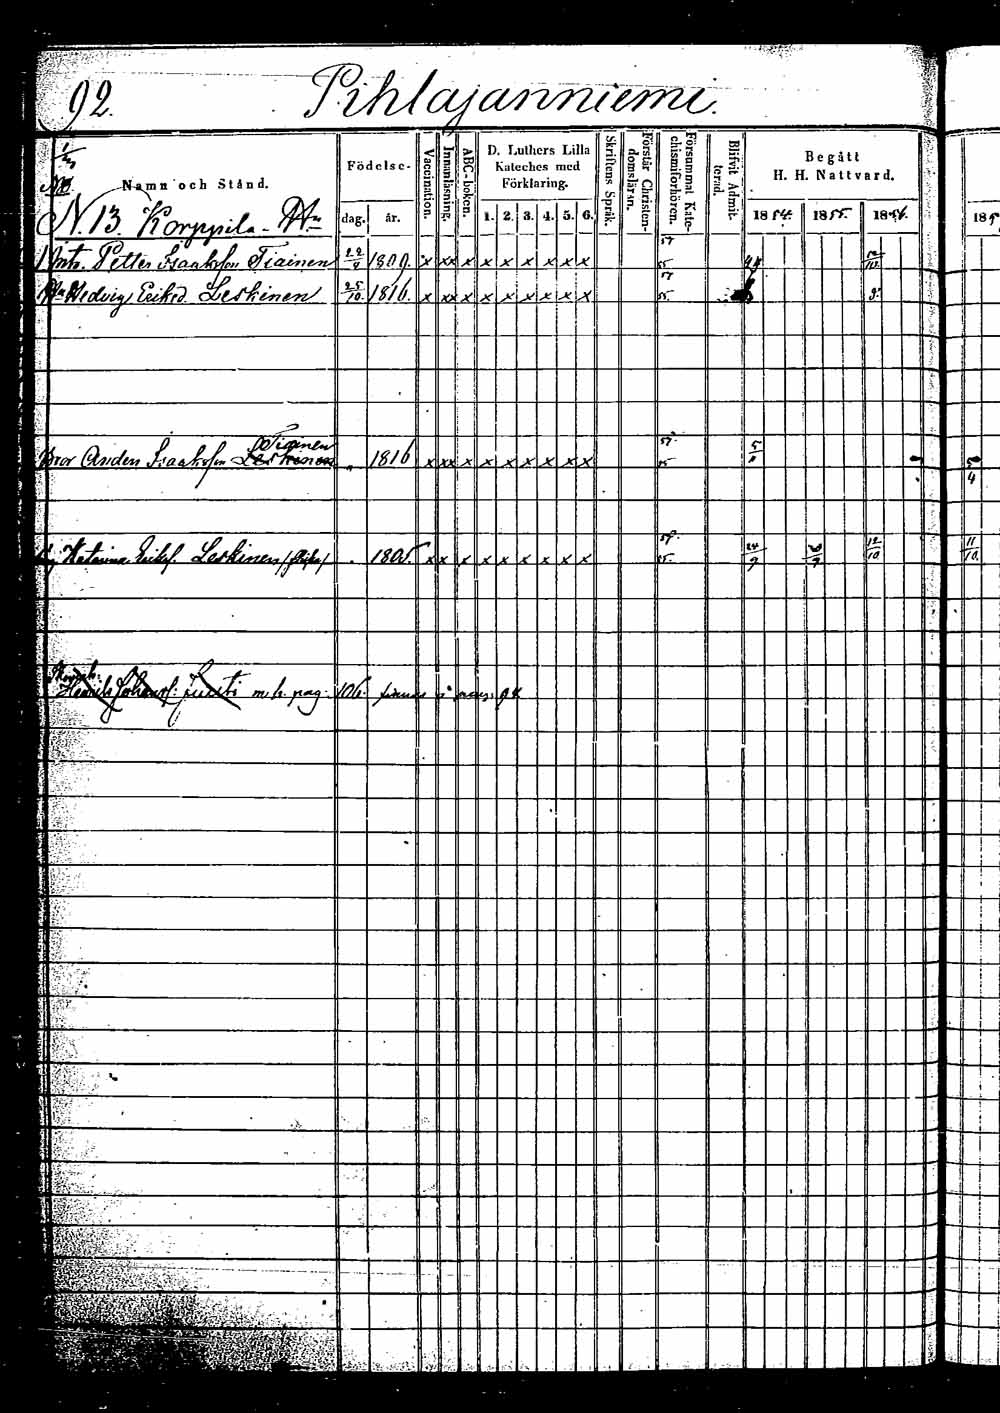 92. Pihlajanniemi.
Namn och Stånd. Födelse- dag. år. Vaccination. Innanläsning. ABC-boken. D. Luthers Lilla Kateches med Förklaring. 1. 2. 3. 4. 5. 6. Skriftens Språk. Förstår Christendomsläran. Försummat Katechismiförhören. Blifvit Admitterad. Begått H. H. Nattvard. 1854. 1855. 1856. 185
N. 13. Korppila
Petter Isaaksson Tiainen 1809. x xx x x x x x x x 55
Hedvig Eriksd. Leskinen 25/10. 1816. x xx x x x x x x x 55 9.
Tiainen
Bror Anders Isaaksson Leskinen 1816 x xx x x x x x x x 5/4
Katarina Eriksd. Leskinen 1805. x x x x x x x x x 55. 24/9 12/10 11/10.
Henrik Johanss: m. h. pag. 106. finnes i pag. 94